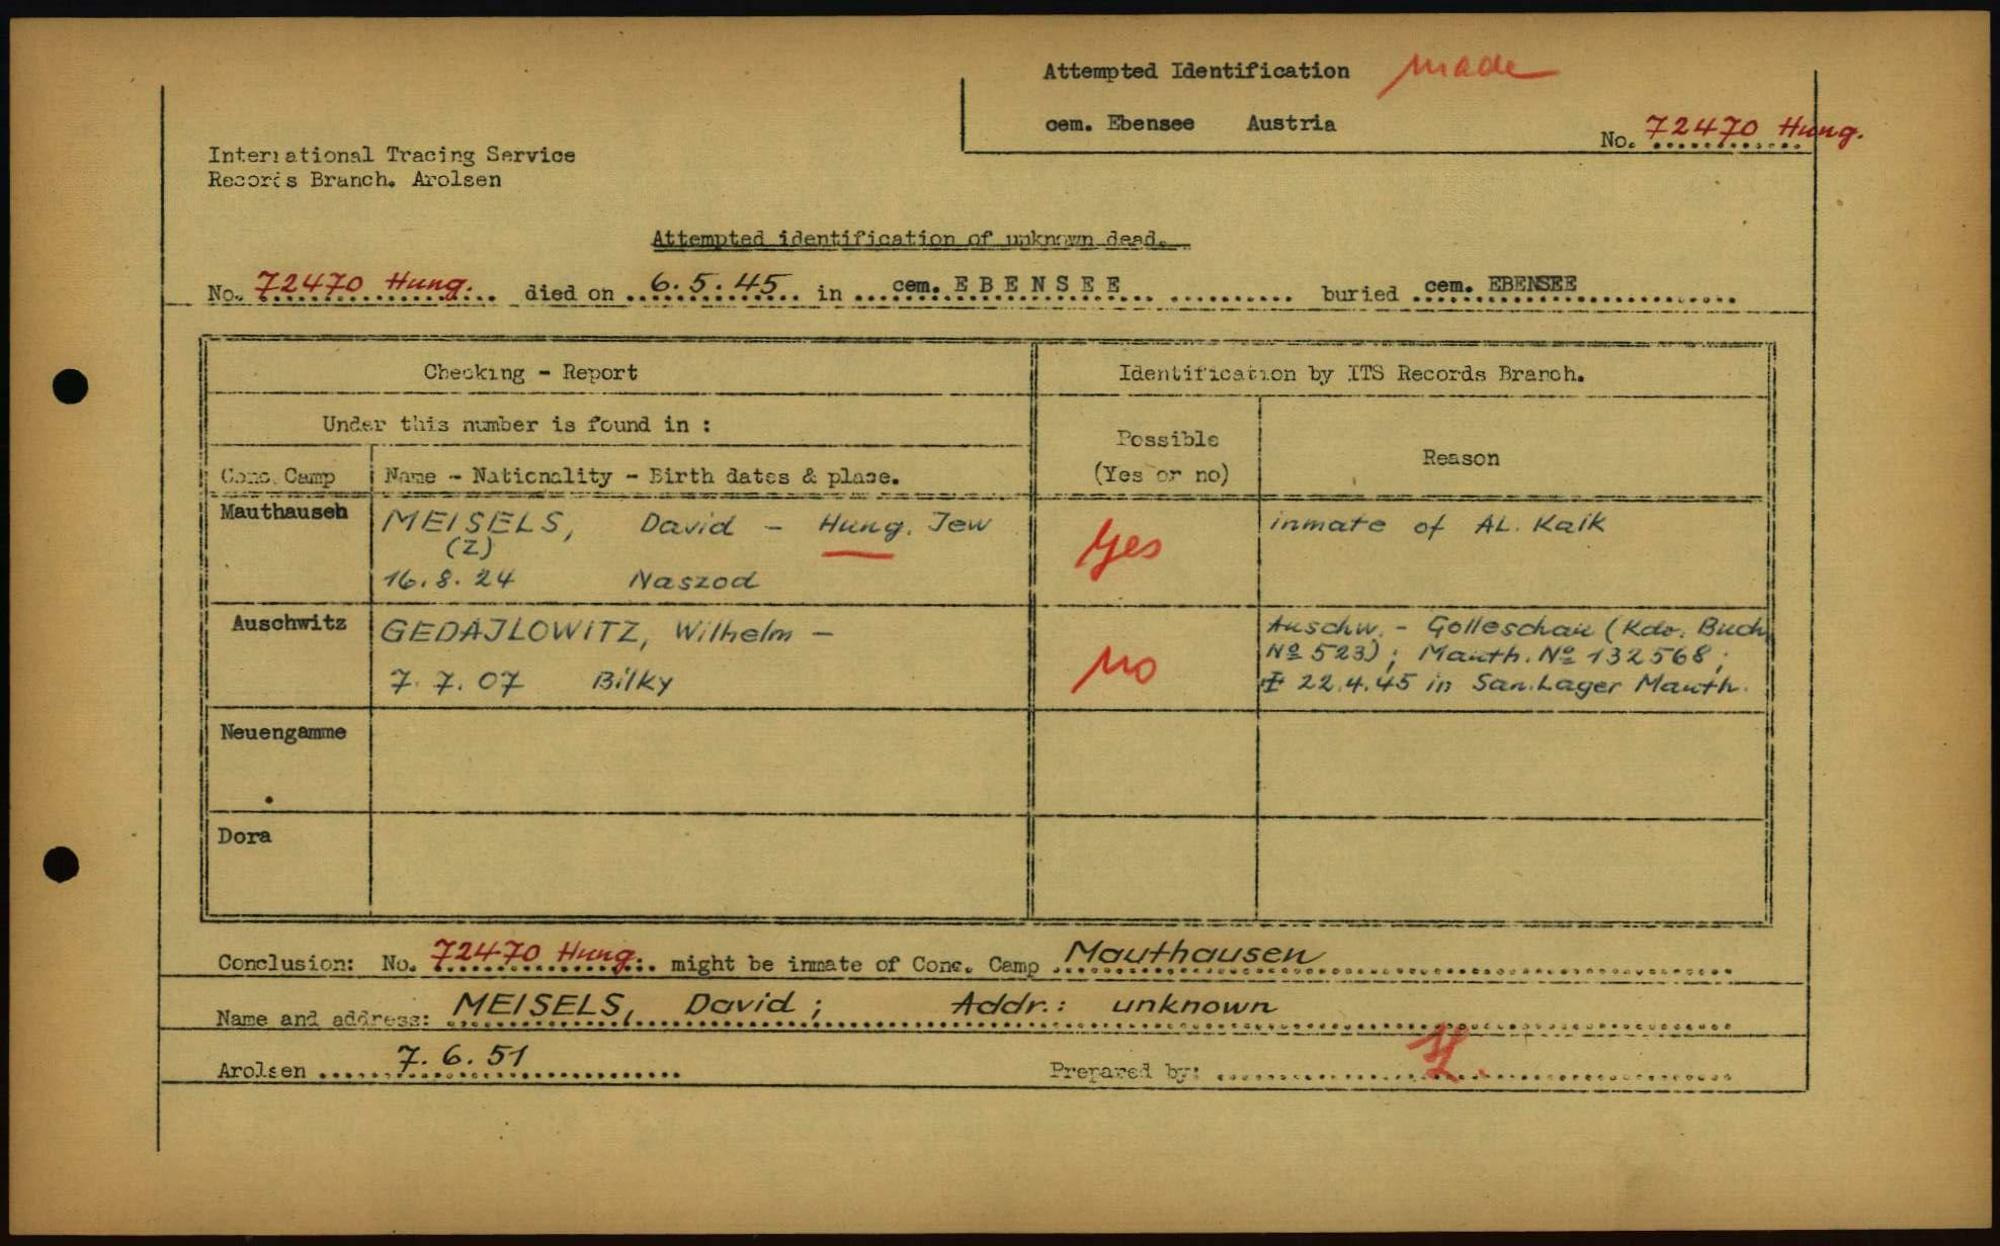 Attempted Identification made
cem. Ebensee Austria
No. 72470 Hung.
International Tracing Service
Records Branch. Arolsen
Attempted identification of unknown dead.
No. 72470 Hung. died on 6.5.45 in cem. EBENSEE buried cem. EBENSEE
Checking - Report
Identification by ITS Records Branch.
Under this number is found in :
Possible
(Yes or no)
Reason
Conc. Camp
Name - Nationality - Birth dates & place.
Mauthausen
MEISELS, David - Hung. Jew
(Z)
16.8.24 Naszod
Yes
inmate of AL. Kaik
Auschwitz
GEDAJLOWITZ, Wilhelm -
7.7.07 Bilky
no
Auschw. - Golleschau (Kdo. Buch
Nº 523); Mauth. Nº 132568;
22.4.45 in San. Lager Mauth.
Neuengamme
Dora
Conclusion: No. 72470 Hung. might be inmate of Conc. Camp Mauthausen
Name and address: MEISELS, David; Addr.: unknown
Arolsen 7.6.51
Prepared by: